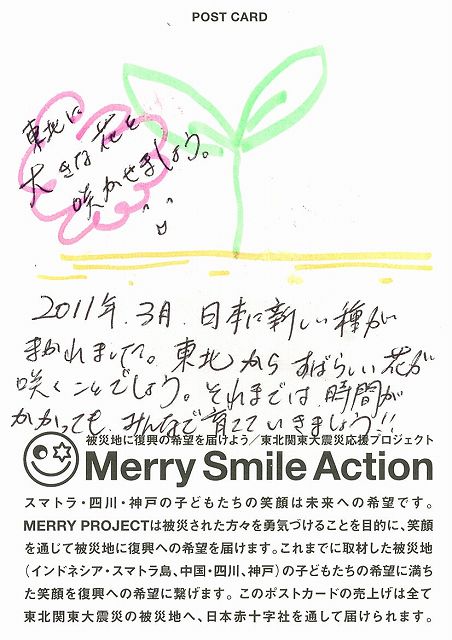 POST CARD
東北に
大きな花を
咲かせましょう。
2011年.3月.日本に新しい種が
まかれました。東北からすばらしい花が
咲くことでしょう。それまでは時間が
かかっても、みんなで育てていきましょう!!
被災地に復興の希望を届けよう／東北関東大震災応援プロジェクト
Merry Smile Action
スマトラ・四川・神戸の子どもたちの笑顔は未来への希望です。
MERRY PROJECTは被災された方々を勇気づけることを目的に、笑顔
を通じて被災地に復興への希望を届けます。これまでに取材した被災地
（インドネシア・スマトラ島、中国・四川、神戸）の子どもたちの希望に満ち
た笑顔を復興への希望に繋げます。このポストカードの売上げは全て
東北関東大震災の被災地へ、日本赤十字社を通して届けられます。